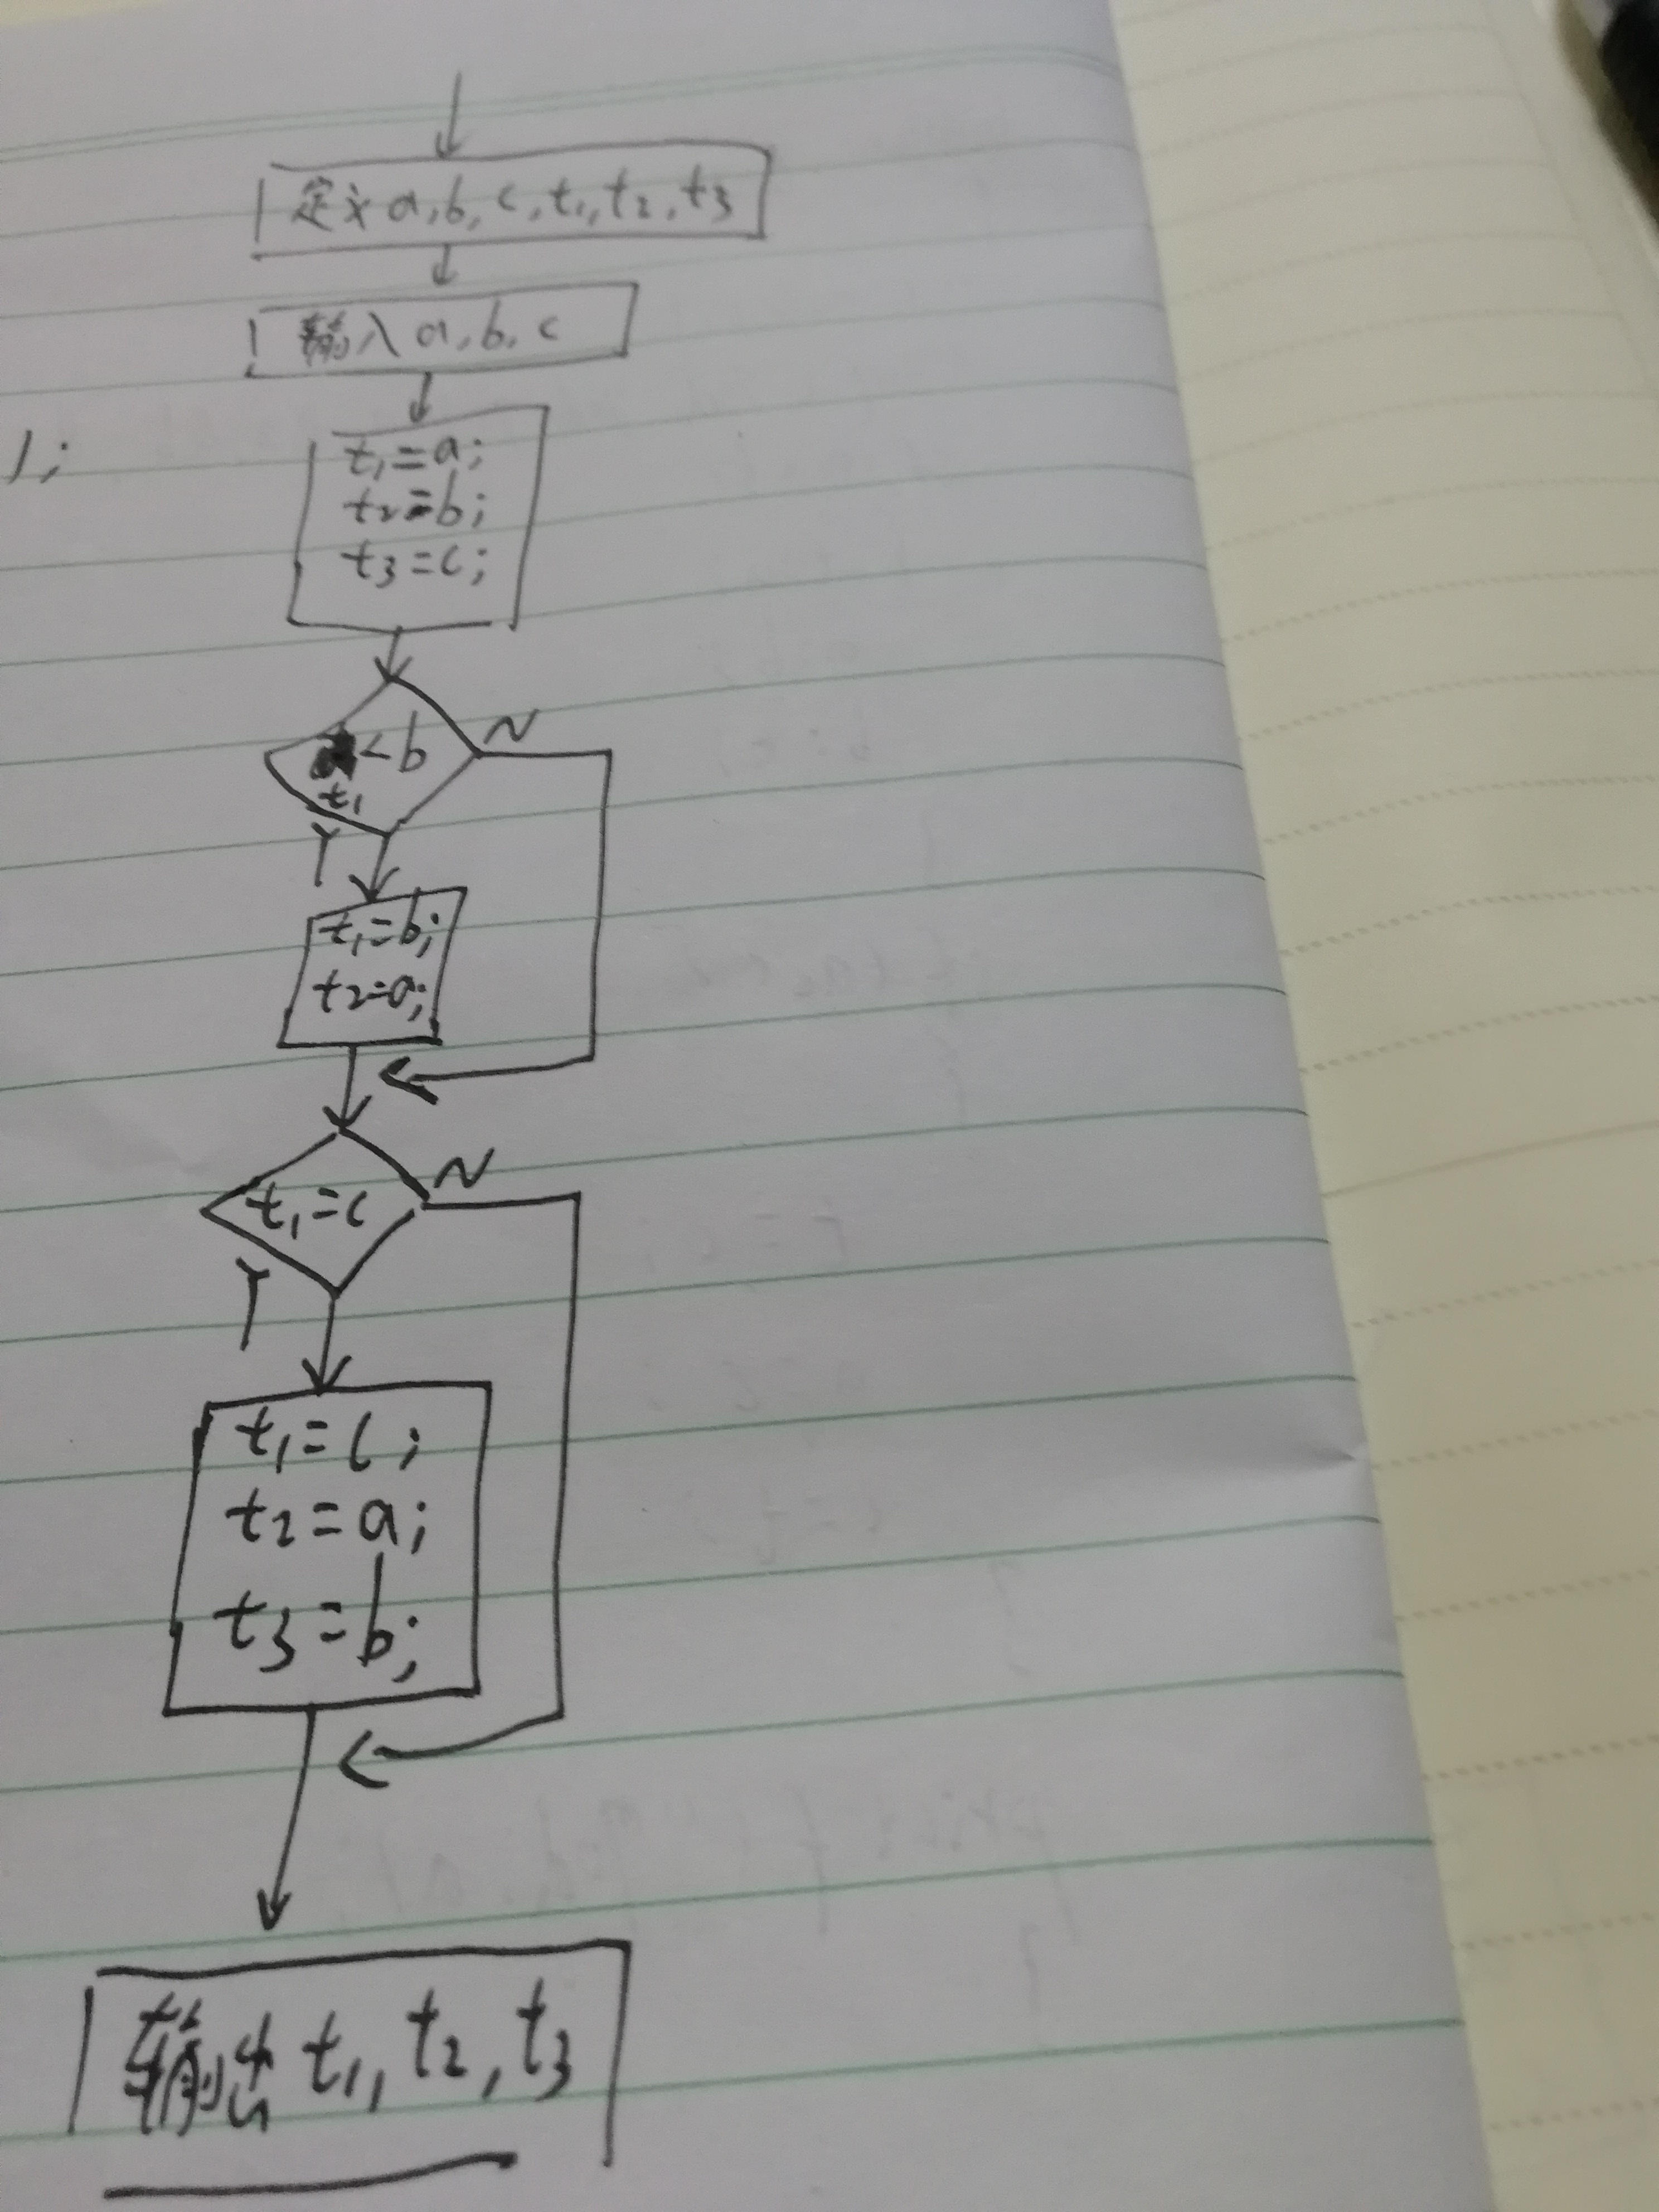 定义 a, b, c, t1, t2, t3
输入 a, b, c
1;
t1=a;
t2=b;
t3=c;
<b
N
t1
Y
t1=b;
t2=a;
N
t1=c
Y
t1=c;
t2=a;
t3=b;
输出 t1, t2, t3